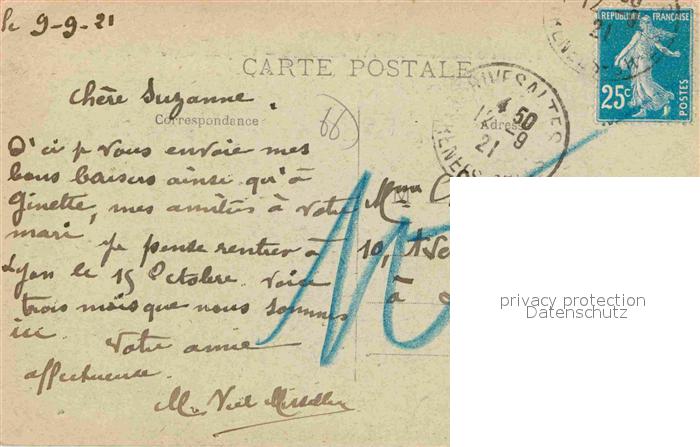 le 9-9-21
RÉPUBLIQUE FRANÇAISE
25c
POSTES
CARTE POSTALE
RIVESALTES
4 50
12-9
21
Correspondance
66
Adresse
Chère Suzanne,
D'ici je vous envoie mes
bons baisers ainsi qu'à
Ginette, mes amitiés à votre
mari. Je pense rentrer à
Lyon le 15 Octobre. Voici
trois mois que nous sommes
ici. Votre amie
affectueuse.
M
Mme
10, Ave
à
privacy protection
Datenschutz